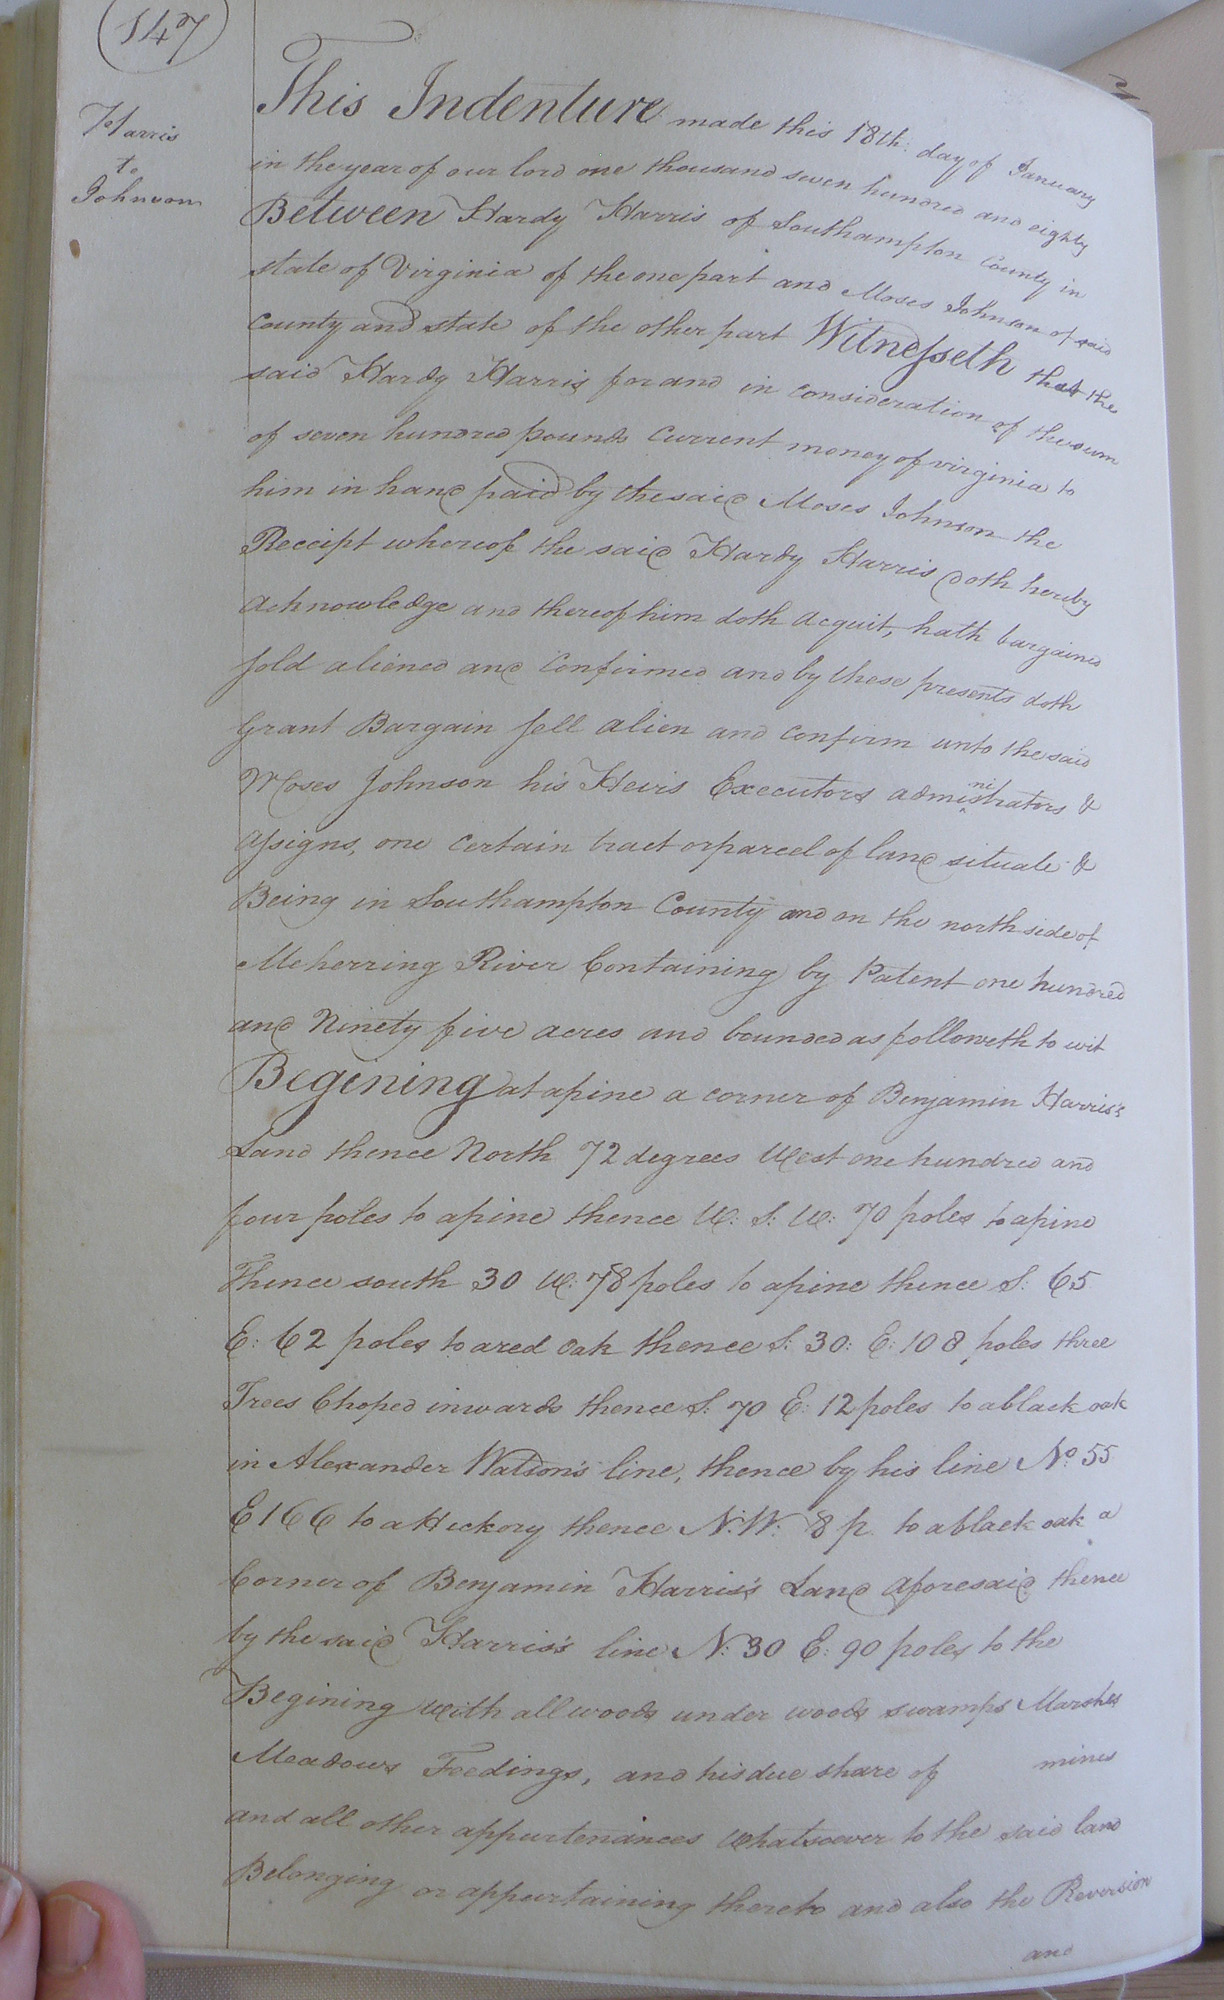 147
Harris
to
Johnson
This Indenture made this 18th: day of January
in the year of our lord one thousand seven hundred and eighty
Between Hardy Harris of Southampton County in
state of Virginia of the one part and Moses Johnson of said
County and state of the other part Witnesseth that the
said Hardy Harris for and in consideration of the sum
of seven hundred pounds Current money of virginia to
him in hand paid by the said Moses Johnson the
Receipt whereof the said Hardy Harris doth hereby
Acknowledge and thereof him doth Acquit, hath bargained
sold aliened and Confirmed and by these presents doth
Grant Bargain sell alien and confirm unto the said
Moses Johnson his Heirs Executors administrators &
Assigns, one certain tract or parcel of land situate &
Being in Southampton County and on the north side of
Meherring River Containing by Patent one hundred
and Ninety five acres and bounded as followeth to wit
Begining at a pine a corner of Benjamin Harris's
Land thence North 72 degrees West one hundred and
four poles to a pine thence W: S: W: 70 poles to a pine
Thence south 30 W: 78 poles to a pine thence S: 65
E: 62 poles to a red oak thence S: 30: E: 108 poles three
Trees Choped inwards thence S: 70 E: 12 poles to a black oak
in Alexander Watson's line, thence by his line No. 55
E 166 to a Hickory thence N: W: 8 p. to a black oak a
Corner of Benjamin Harris's Land Aforesaid thence
by the said Harris's line N: 30 E: 90 poles to the
Begining With all woods under woods swamps Marshes
Meadows Feedings, and his due share of mines
and all other appurtenances Whatsoever to the said land
Belonging or appurtaining thereto and also the Reversion
and